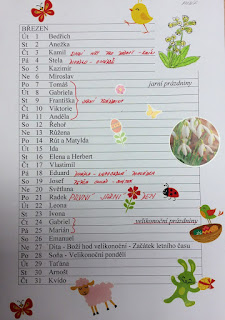 BŘEZEN
Út 1 Bedřich
St 2 Anežka
Čt 3 Kamil
Pá 4 Stela
So 5 Kazimír
Ne 6 Miroslav
Po 7 Tomáš jarní prázdniny
Út 8 Gabriela
St 9 Františka JARNÍ PRÁZDNINY
Čt 10 Viktorie
Pá 11 Anděla
So 12 Řehoř
Ne 13 Růžena
Po 14 Rút a Matylda
Út 15 Ida
St 16 Elena a Herbert
Čt 17 Vlastimil
Pá 18 Eduard
So 19 Josef
Ne 20 Světlana
Po 21 Radek PRVNÍ JARNÍ DEN
Út 22 Leona
St 23 Ivona
Čt 24 Gabriel velikonoční prázdniny
Pá 25 Marián
So 26 Emanuel
Ne 27 Dita - Boží hod velikonoční - Začátek letního času
Po 28 Soňa - Velikonoční pondělí
Út 29 Taťána
St 30 Arnošt
Čt 31 Kvido